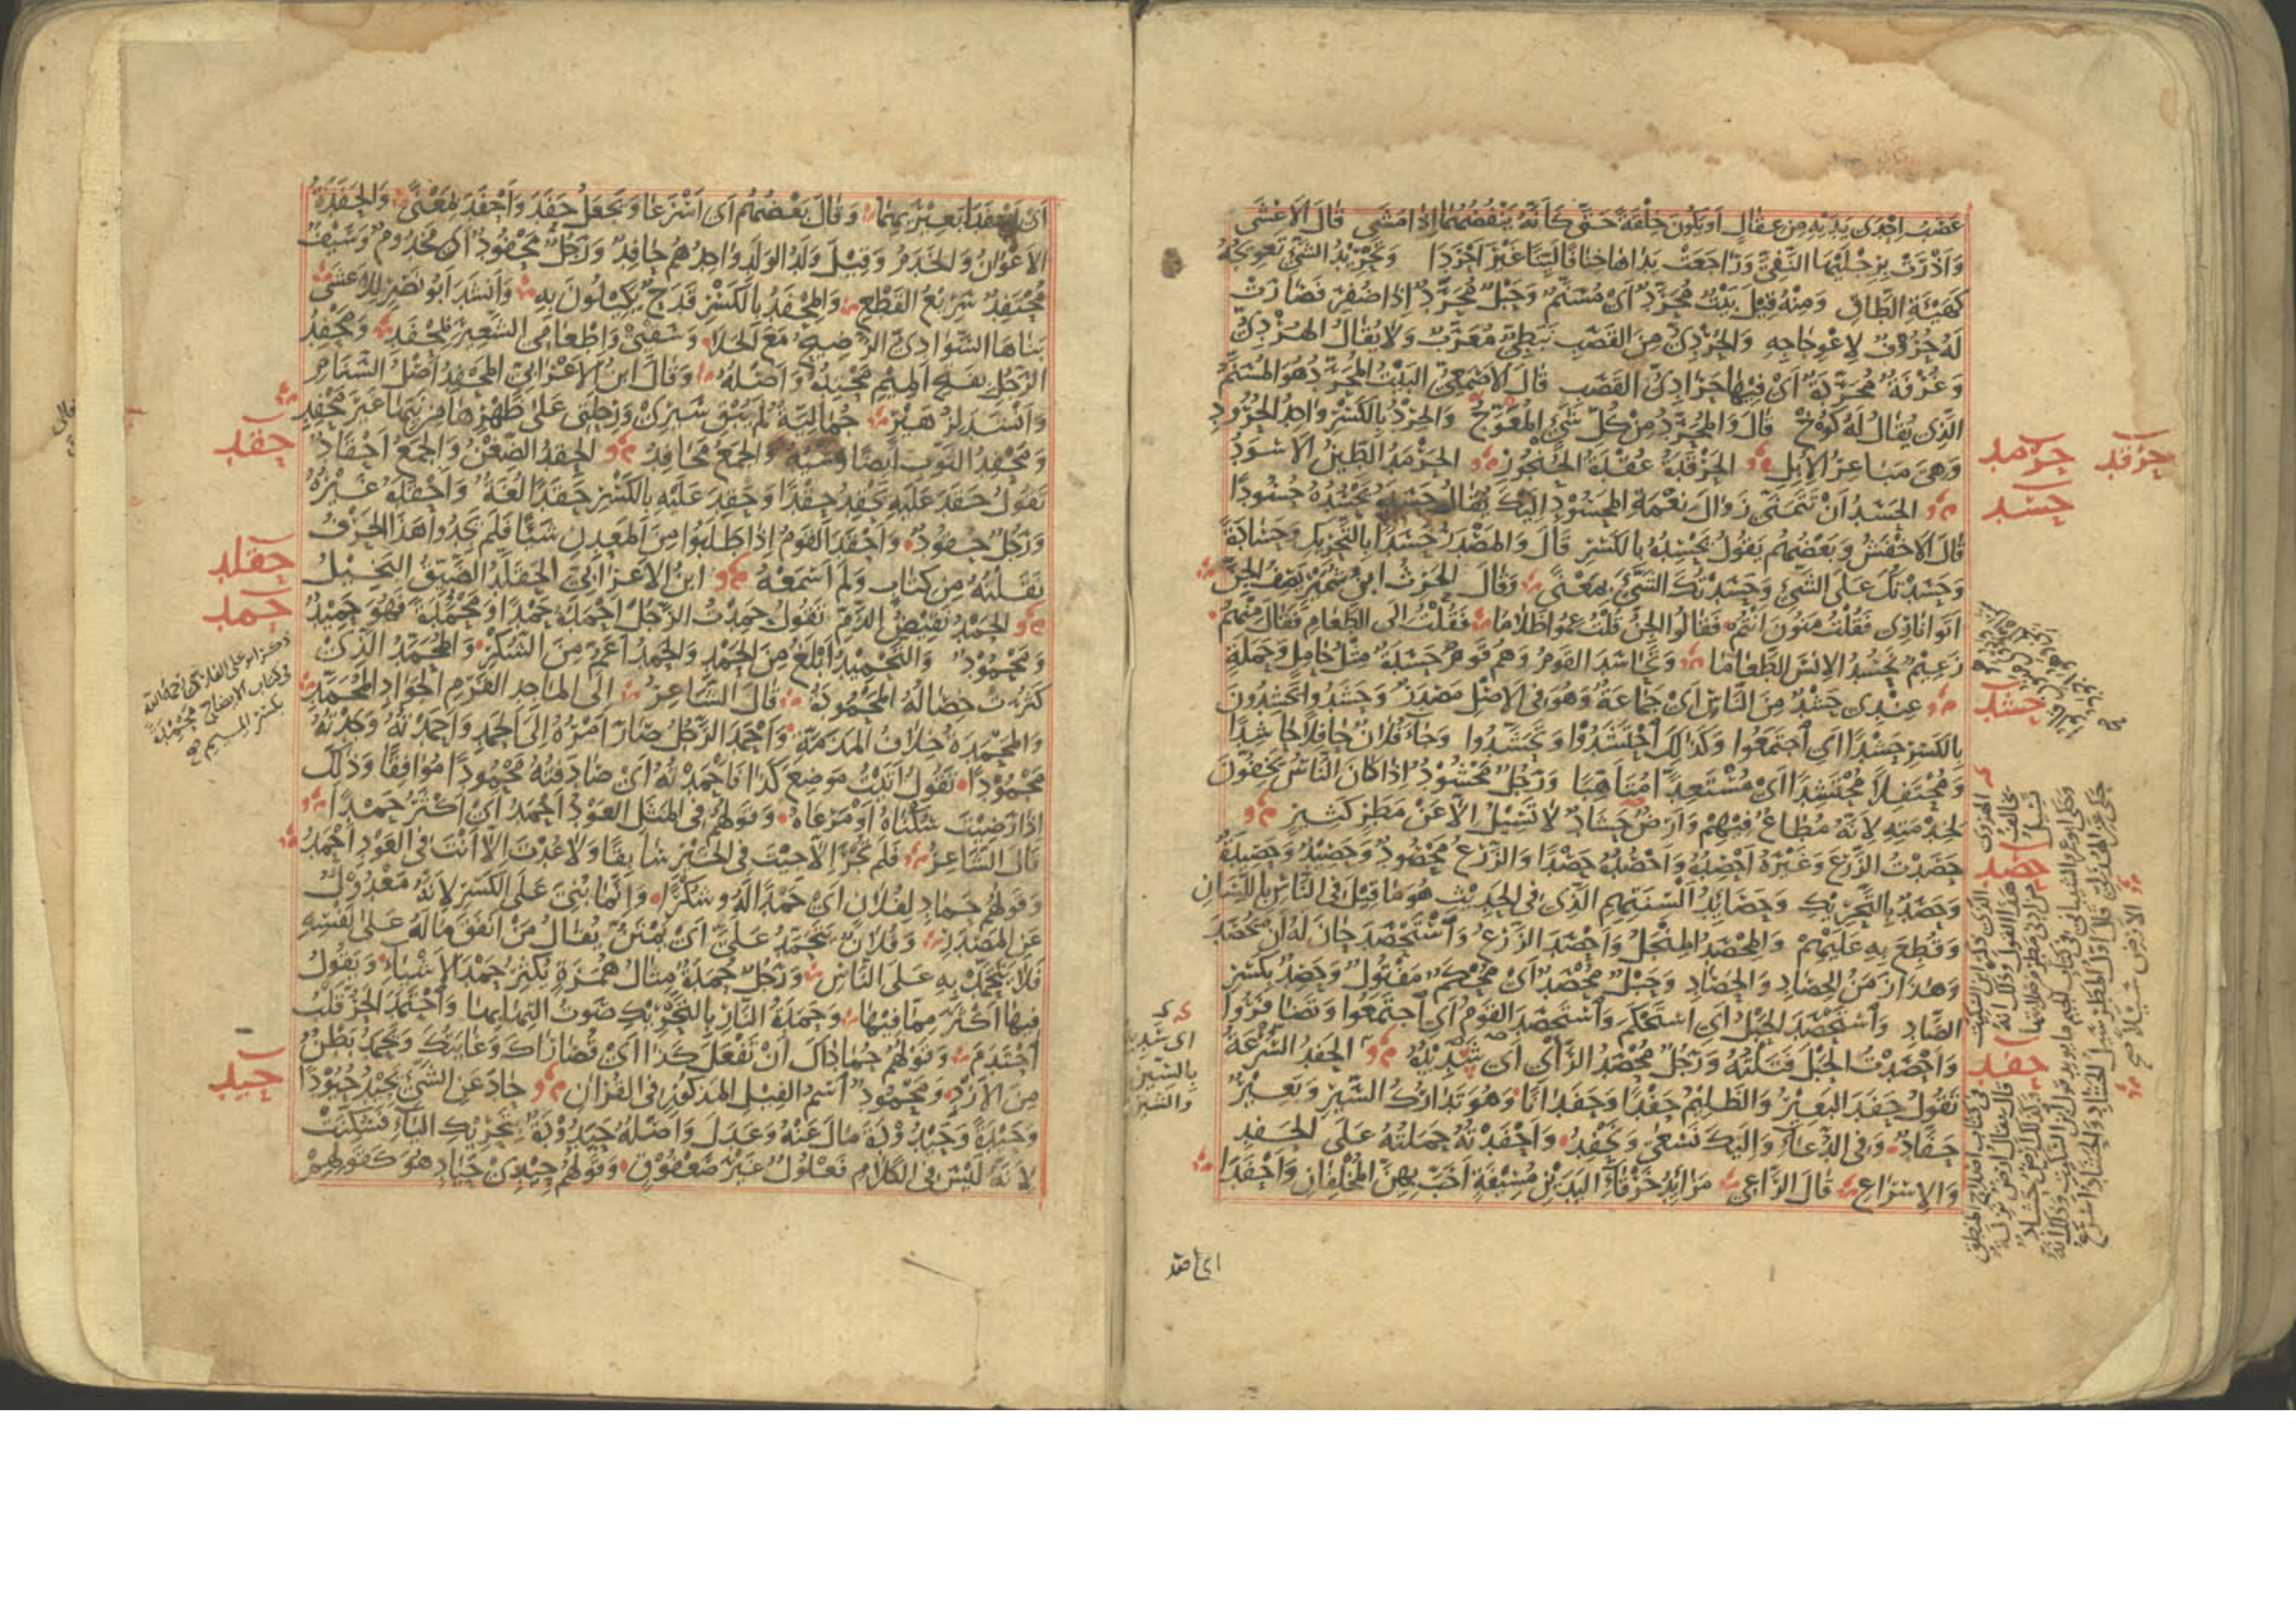 عَصَبُ اِحْدَى يَدَيْهِ مِن عِقَالٍ اَوْ يَكُونَ خِلْقَةً حَتَّى كَاَنَّهُ يَنْفُضُهُمَا اِذَا مَشَى قَالَ الاَعْشَى
وَاَذْرَتْ بِرِجْلَيْهَا النَّفِيَّ وَرَاجَعَتْ يَدَاهَا خِنَافًا لَيِّنًا غَيْرَ اَحْرَدَا وَتَحْرِيْدُ الشَّيْءِ تَعْوِيْجُهُ
كَهَيْئَةِ الطَّاقِ وَمِنْهُ قِيْلَ بَيْتٌ مُحَرَّدٌ اَىْ مُسَنَّمٌ وَحَبْلٌ مُحَرَّدٌ اِذَا ضُفِرَ فَصَارَتْ
لَهُ حُرُوْفٌ لِاعْوِجَاجِهِ وَالحُرْدِيُّ مِنَ القَصَبِ نَبَطِيٌّ مُعَرَّبٌ وَلَا يُقَالُ الهُرْدِيُّ
وَغُرْفَةٌ مُحَرَّدَةٌ اَىْ فِيْهَا حَرَادِيُّ القَصَبِ قَالَ الاَصْمَعِيُّ البَيْتُ المُحَرَّدُ هُوَ المُسَنَّمُ
الَّذِى يُقَالُ لَهُ كُوْخٌ قَالَ وَالمُحَرَّدُ مِنْ كُلِّ شَيْءٍ المُعَوَّجُ وَالحِرْدُ بِالكَسْرِ وَاحِدُ الحُرُوْدِ
وَهِىَ مَبَاعِرُ الاِبِلِ الحَرْقَدَةُ عُقْدَةُ الحُنْجُوْرِ الحَرْمَدُ الطِّيْنُ الاَسْوَدُ
حرقد حرمد
الحَسَدُ اَنْ تَتَمَنَّى زَوَالَ نِعْمَةِ المَحْسُوْدِ اِلَيْكَ يُقَالُ حَسَدَهُ يَحْسُدُهُ حُسُوْدًا
حسد
قَالَ الاَخْفَشُ وَبَعْضُهُمْ يَقُولُ يَحْسِدُهُ بِالكَسْرِ قَالَ وَالمَصْدَرُ حَسَدًا بِالتَّحْرِيْكِ وَحَسَادَةً
وَحَسَدْتُكَ عَلَى الشَّيْءِ وَحَسَدْتُكَ الشَّيْءَ بِمَعْنًى وَقَالَ الحَرْثُ ابْنُ شُمَيْرٍ يَصِفُ الجِنَّ
اَتَوْا نَارِى فَقُلْتُ مَنُوْنَ اَنْتُمْ فَقَالُوا الجِنُّ قُلْتُ عِمُوْا ظَلَامًا فَقُلْتُ اِلَى الطَّعَامِ فَقَالَ مِنْهُمْ
زَعِيْمٌ نَحْسُدُ الاِنْسَ الطَّعَامَا وَتَحَاسَدَ القَوْمُ وَهُمْ قَوْمٌ حَسَدَةٌ مِثْلُ حَامِلٍ وَحَمَلَةٍ
عِنْدِى حَشْدٌ مِنَ النَّاسِ اَىْ جَمَاعَةٌ وَهُوَ فِى الاَصْلِ مَصْدَرٌ وَحَشَدُوا يَحْشِدُوْنَ
حشد
بِالكَسْرِ حَشْدًا اَىِ اجْتَمَعُوا وَكَذٰلِكَ احْتَشَدُوْا وَتَحَشَّدُوا وَجَاءَ فُلَانٌ حَافِلًا حَاشِدًا
وَمُحْتَفِلًا مُحْتَشِدًا اَىْ مُسْتَعِدًّا مُتَاَهِّبًا وَرَجُلٌ مَحْشُوْدٌ اِذَا كَانَ النَّاسُ يَخِفُّوْنَ
لِخِدْمَتِهِ لِاَنَّهُ مُطَاعٌ فِيْهِمْ وَاَرْضٌ حَشَادٌ لَا تَسِيْلُ اِلَّا عَنْ مَطَرٍ كَثِيْرٍ
حَصَدْتُ الزَّرْعَ وَغَيْرَهُ اَحْصِدُهُ وَاَحْصُدُهُ حَصْدًا وَالزَّرْعُ مَحْصُوْدٌ وَحَصِيْدٌ وَحَصِيْدَةٌ
حصد
وَحَصَدٌ بِالتَّحْرِيْكِ وَحَصَائِدُ اَلْسِنَتِهِمِ الَّذِى فِى الحَدِيْثِ هُوَ مَا قِيْلَ فِى النَّاسِ بِاللِّسَانِ
وَقُطِعَ بِهِ عَلَيْهِمْ وَالمِحْصَدُ المِنْجَلُ وَاَحْصَدَ الزَّرْعُ وَاسْتَحْصَدَ حَانَ لَهُ اَنْ يُحْصَدَ
وَهٰذَا زَمَنُ الحِصَادِ وَالحَصَادِ وَحَبْلٌ مُحْصَدٌ اَىْ مُحْكَمٌ مَفْتُوْلٌ وَحَصِدٌ بِكَسْرِ
الصَّادِ وَاسْتَحْصَدَ الحَبْلُ اَىِ اسْتَحْكَمَ وَاسْتَحْصَدَ القَوْمُ اَىِ اجْتَمَعُوا وَتَضَافَرُوا
وَاَحْصَدْتُ الحَبْلَ فَتَلْتُهُ وَرَجُلٌ مُحْصَدُ الرَّاْىِ اَىْ سَدِيْدُهُ الحَفْدُ السُّرْعَةُ
حفد
تَقُوْلُ حَفَدَ البَعِيْرُ وَالظَّلِيْمُ حَفْدًا وَحَفَدَانًا وَهُوَ تَدَارُكُ السَّيْرِ وَبَعِيْرٌ
حَفَّادٌ وَفِى الدُّعَاءِ وَاِلَيْكَ نَسْعَى وَنَحْفِدُ وَاَحْفَدْتُهُ حَمَلْتُهُ عَلَى الحَفْدِ
وَالاِسْرَاعِ قَالَ الرَّاعِى مَزَايِدُ خَرْقَاءِ اليَدَيْنِ مُسِيْفَةٍ اَخَبَّ بِهِنَّ المُخْلِفَانِ وَاَحْفَدَا
اَىْ اَحْفَدَا بَعِيْرَيْهِمَا وَقَالَ بَعْضُهُمْ اَىْ اَسْرَعَا وَيَجْعَلُ حَفَدَ وَاَحْفَدَ بِمَعْنًى وَالحَفَدَةُ
الاَعْوَانُ وَالخَدَمُ وَقِيْلَ وَلَدُ الوَلَدِ وَاحِدُهُمْ حَافِدٌ وَرَجُلٌ مَحْفُوْدٌ اَىْ مَخْدُوْمٌ وَسَيْفٌ
مُحْتَفِدٌ سَرِيْعُ القَطْعِ وَالمِحْفَدُ بِالكَسْرِ قَدَحٌ يَكِيْلُوْنَ بِهِ وَاَنْشَدَ اَبُو نَصْرٍ لِلاَعْشَى
بَنَاهَا السَّوَادِىُّ الرَّضِيْحُ مَعَ الخَلَا وَسَقْيِى وَاِطْعَامِى الشَّعِيْرَ بِمِحْفَدِ وَمَحْفِدُ
الرَّجُلِ بِفَتْحِ المِيْمِ مَحْتِدُهُ وَاَصْلُهُ وَقَالَ ابْنُ الاَعْرَابِىِّ المَحْفِدُ اَصْلُ السَّنَامِ
وَاَنْشَدَ لِزُهَيْرٍ جُمَالِيَّةٌ لَمْ يُبْقِ سَيْرِىْ وَرِحْلَتِى عَلَى ظَهْرِهَا مِنْ نَيِّهَا غَيْرَ مَحْفِدِ
وَمَحْفِدُ الثَّوْبِ اَيْضًا وَشْيُهُ وَالجَمْعُ مَحَافِدُ الحِقْدُ الضِّغْنُ وَالجَمْعُ اَحْقَادٌ
حقد
تَقُوْلُ حَقَدَ عَلَيْهِ يَحْقِدُ حِقْدًا وَحَقِدَ عَلَيْهِ بِالكَسْرِ حَقَدًا لُغَةٌ وَاَحْقَدَهُ غَيْرُهُ
وَرَجُلٌ حَقُوْدٌ وَاَحْقَدَ القَوْمُ اِذَا طَلَبُوا مِنَ المَعْدِنِ شَيْئًا فَلَمْ يَجِدُوا هٰذَا الحَرْفُ
نَقَلْتُهُ مِنْ كِتَابٍ وَلَمْ اَسْمَعْهُ ابْنُ الاَعْرَابِىِّ الحَقَلَّدُ الضَّيِّقُ البَخِيْلُ
حقلد
الحَمْدُ نَقِيْضُ الذَّمِّ تَقُوْلُ حَمِدْتُ الرَّجُلَ اَحْمَدُهُ حَمْدًا وَمَحْمَدَةً فَهُوَ حَمِيْدٌ
حمد
وَمَحْمُوْدٌ وَالتَّحْمِيْدُ اَبْلَغُ مِنَ الحَمْدِ وَالحَمْدُ اَعَمُّ مِنَ الشُّكْرِ وَالمُحَمَّدُ الَّذِىْ
كَثُرَتْ خِصَالُهُ المَحْمُوْدَةُ قَالَ الشَّاعِرُ اِلَى المَاجِدِ القَرْمِ الجَوَادِ المُحَمَّدِ
وَالمَحْمَدَةُ خِلَافُ المَذَمَّةِ وَاَحْمَدَ الرَّجُلُ صَارَ اَمْرُهُ اِلَى الحَمْدِ وَاَحْمَدْتُهُ وَجَدْتُهُ
مَحْمُوْدًا تَقُوْلُ اَتَيْتُ مَوْضِعَ كَذَا فَاَحْمَدْتُهُ اَىْ صَادَفْتُهُ مَحْمُوْدًا مُوَافِقًا وَذٰلِكَ
اِذَا رَضِيْتَ سُكْنَاهُ اَوْ مَرْعَاهُ وَقَوْلُهُمْ فِى المَثَلِ العَوْدُ اَحْمَدُ اَىْ اَكْثَرُ حَمْدًا
قَالَ الشَّاعِرُ فَلَمْ تَجْرِ اِلَّا جِئْتَ فِى الخَيْرِ سَابِقًا وَلَا عُدْتَ اِلَّا اَنْتَ فِى العَوْدِ اَحْمَدُ
وَقَوْلُهُمْ حَمَادِ لِفُلَانٍ اَىْ حَمْدًا لَهُ وَشُكْرًا وَاِنَّمَا بُنِيَ عَلَى الكَسْرِ لِاَنَّهُ مَعْدُوْلٌ
عَنِ المَصْدَرِ وَفُلَانٌ يَتَحَمَّدُ عَلَىَّ اَىْ يَمْتَنُّ يُقَالُ مَنْ اَنْفَقَ مَالَهُ عَلَى نَفْسِهِ
فَلَا يَتَحَمَّدْ بِهِ عَلَى النَّاسِ وَرَجُلٌ حُمَدَةٌ مِثَالُ هُمَزَةٍ يُكْثِرُ حَمْدَ الاَشْيَاءِ وَيَقُوْلُ
فِيْهَا اَكْثَرَ مِمَّا فِيْهَا وَحَمَدَةُ النَّارِ بِالتَّحْرِيْكِ صَوْتُ الْتِهَابِهَا وَاحْتَمَدَ الحَرُّ قَلْبُ
احْتَدَمَ وَقَوْلُهُمْ حُمَادَاكَ اَنْ تَفْعَلَ كَذَا اَىْ قُصَارَاكَ وَغَايَتُكَ وَيَحْمَدُ بَطْنٌ
مِنَ الاَزْدِ وَمَحْمُوْدٌ اسْمُ الفِيْلِ المَذْكُوْرِ فِى القُرْاٰنِ حَادَ عَنِ الشَّيْءِ يَحِيْدُ حُيُوْدًا
حيد
وَحَيْدَةً وَحَيْدُوْدَةً مَالَ عَنْهُ وَعَدَلَ وَاَصْلُهُ حَيَدُوْدَةٌ بِتَحْرِيْكِ اليَاءِ فَسُكِّنَتْ
لِاَنَّهُ لَيْسَ فِى الكَلَامِ فَعْلُوْلٌ غَيْرَ صَعْفُوْقٍ وَقَوْلُهُمْ حِيْدِىْ حَيَادِ هُوَ كَقَوْلِهِمْ